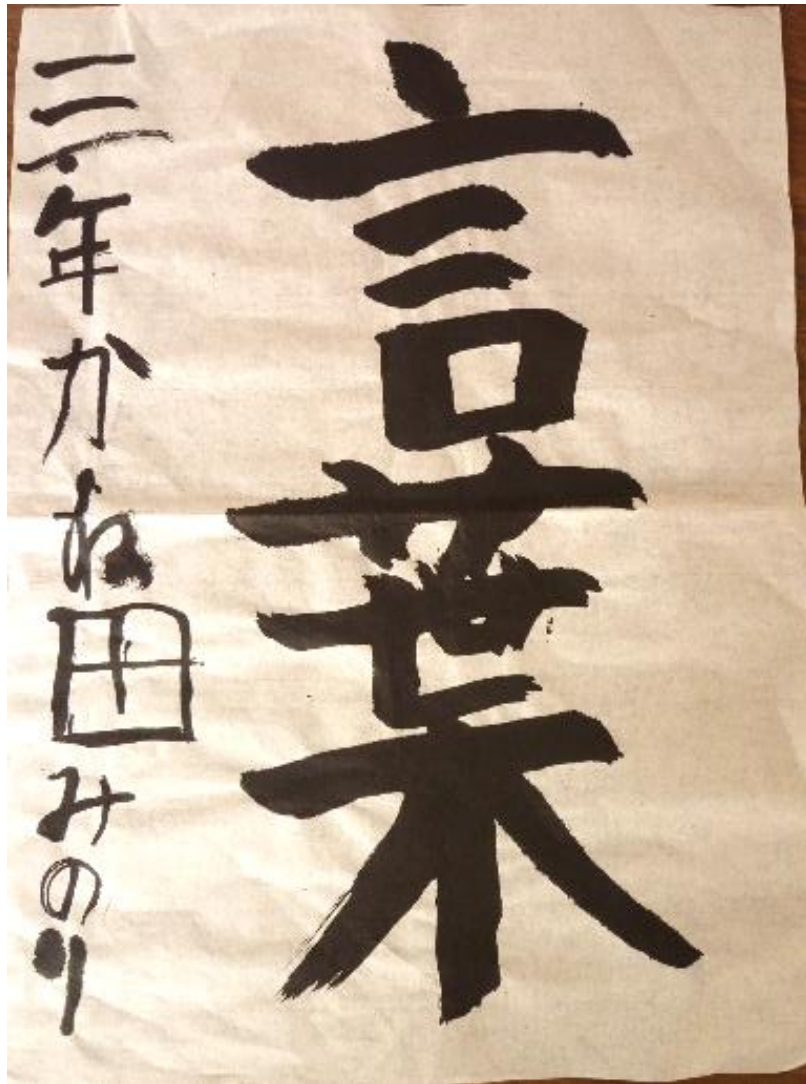 言葉
三年かね田みのり